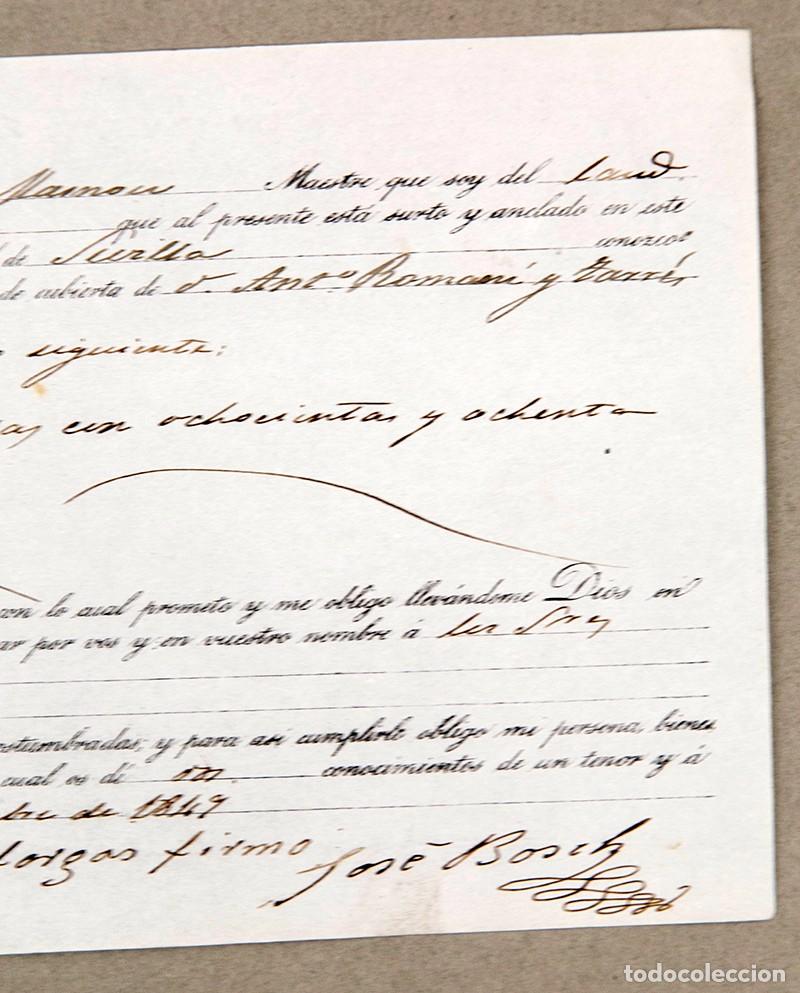 Maestre que soy del Laud
que al presente está surto y anclado en este
de Sevilla conozco
de cubierta de D. Ant.o Romaní y Tarrés
siguiente:
con ochocientas y ochenta
con lo cual prometo y me obligo llevándome Dios en
ar por vos y en vuestro nombre á los Sres
ostumbradas; y para asi cumplirlo obligo mi persona, bienes
cual os dí un conocimientos de un tenor y á
bre de 1849
firmo José Bosch
todocoleccion